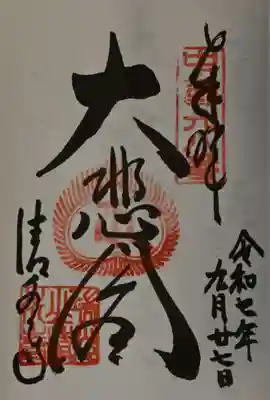 奉拝
令和七年
九月廿七日
大悲閣
清水寺